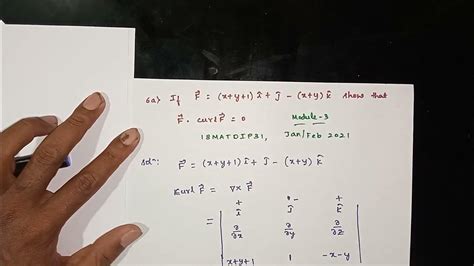 6a) If F⃗ = (x+y+1) î + ĵ - (x+y) k̂ show that
F⃗ . curl F⃗ = 0 Module-3
18MATDIP31, Jan/Feb 2021
Solⁿ: F⃗ = (x+y+1) î + ĵ - (x+y) k̂
curl F⃗ = ∇ × F⃗
+ - +
î ĵ k̂
= ∂/∂x ∂/∂y ∂/∂z
x+y+1 1 -x-y